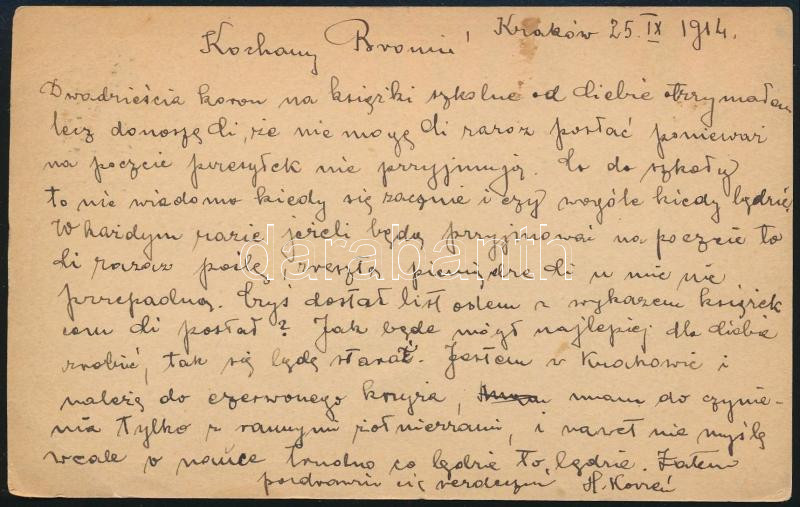 Kraków 25. IX 1914.
Kochany Broniu!
Dwadzieścia koron na książki szkolne od Ciebie otrzymałem
lecz donoszę Ci, że nie mogę Ci zaraz posłać ponieważ
na poczcie przesyłek nie przyjmują. Co do szkoły
to nie wiadomo kiedy się zacznie i czy wogóle kiedy będzie.
W każdym razie, jeżeli będą przyjmować na poczcie to
Ci zaraz poślę, zresztą pieniądze Ci u mnie nie
przepadną. Czyś dostał list odem z wykazem książek
com Ci posłał? Jak będę mógł najlepiej dla Ciebie
zrobić, tak się będę starać. Jestem w Krakowie i
należę do czerwonego krzyża, mam do czynie-
nia tylko z rannymi żołnierzami, i nawet nie myślę
wcale o nauce trudno co będzie to będzie. Zatem
pozdrawiam cię serdecznie H. Korzeń
darabanth